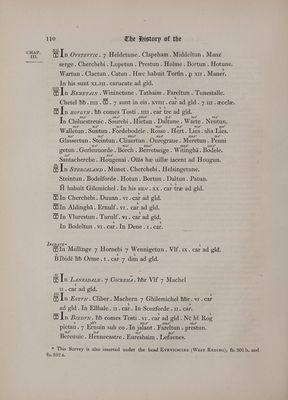 110
The History of
CHAP.
III.
In OVSTEVVIC . 7 Heldetune . Clapeham . Middeltun . Manz
serge . Cherchebi . Lupetun . Prestun . Holme . Bortun . Hotune.
Wartun . Clactun . Catun . Hæc habuit Torfin . p XII . Maner.
In his sunt XLIII . carucatæ ad gld.
In BENETAIN . Wininctune . Tathaim . Fareltun . Tunestalle.
Chetel hb . IIII . 7 sunt in eis . XVIII . car ad gld . 7 III . æcclæ.
In HOVGVN . hb comes Tosti . IIII . car træ ad gld.
In Chiluestreuic . Sourebi . Hietun . Daltune . Warte . Neutun.
Walletun . Suntun . Fordebodele . Rosse . Hert . Lies . alia Lies.
Glassertun . Steintun . Cliuertun . Ouregraue . Meretun . Penni
getun . Gerleuuorde . Borch . Berretseige . Witingha . Bodele.
Santacherche . Hougenai . Oms hæ uillæ iacent ad Hougun.
In STERCALAND . Mimet . Cherchebi . Helsingetune.
Steintun . Bodelforde . Hotun . Bortun . Daltun . Patun.
habuit Gilemichel . In his sunt . XX . car træ ad gld.
In Cherchebi . Duuan . VI . car ad gld.
In Aldingha . Ernulf . VI . car ad gld.
In Vlurestun . Turulf . VI . car ad gld.
In Bodeltun . VI . car . In Dene . I . car.
In Mellinge 7 Hornebi 7 Wennigetun . Vlf . IX . car ad gld.
Ibidē hb Orme . I . car 7 dim ad gld.
In LANESDALE . 7 COCREHĀ . hbr Vlf 7 Machel
II . car ad gld.
In ESTUN . Cliber . Machern 7 Ghilemichel hbr . VI . car
ad gld . In Ellhale . II . car . In Scozforde . II . car.
In BIEDUN . hb comes Tosti . VI . car ad gld . Nc ht Rog
pictau . 7 Ernuin sub eo . In Jalant . Fareltun . prestun.
Bereuuic . Hennecastre . Eureshaim . Lefuenes.
* This Survey is also inserted under the head EVRVICSCIRE (WEST RIDING), fo. 301 b, and
fo. 332 a.